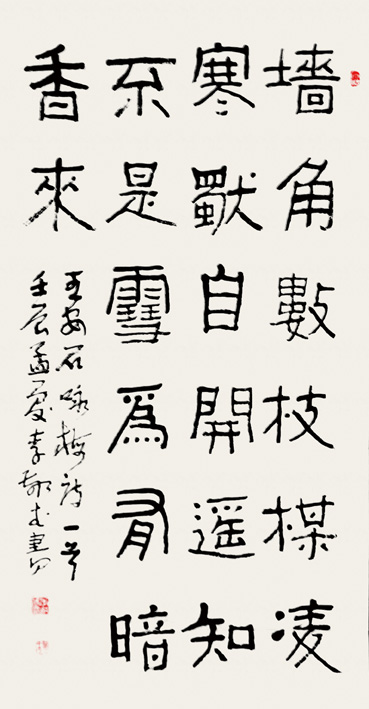 墻角數枝楳凌
寒獨自開遥知
不是雪爲有暗
香來
王安石咏梅詩一首
壬辰孟夏李書